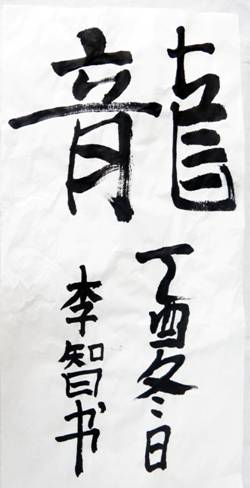 龍
丁酉冬日
李智书